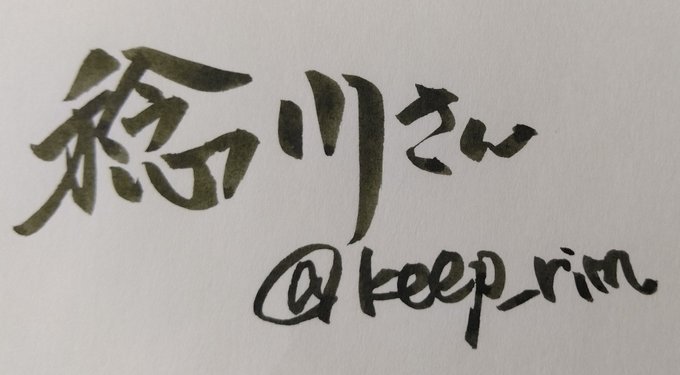 稔川さん
@keep_rim